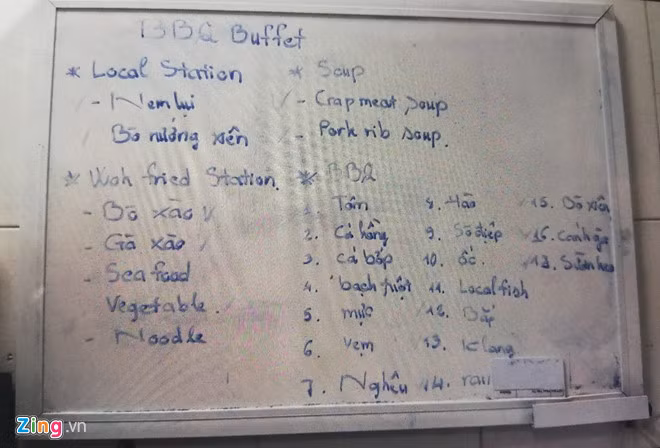 BBQ Buffet
* Local Station
- Nem lụi
Bò nướng xiên
* Woh fried Station.
- Bò xào
- Gà xào
- Sea food
Vegetable.
- Noodle
* Soup
- Crap meat soup
- Pork rib soup.
* BBQ
1. Tôm
2. Cá hồng
3. Cá bớp
4. bạch tuột
5. mực
6. Vẹm
7. Nghêu
8. Hào
9. Sò điệp
10. ốc.
11. Local fish
12. Bắp
13. K lang
14. rau
15. Bò xiên
16. Cánh gà
17. Sườn heo
Zing.vn